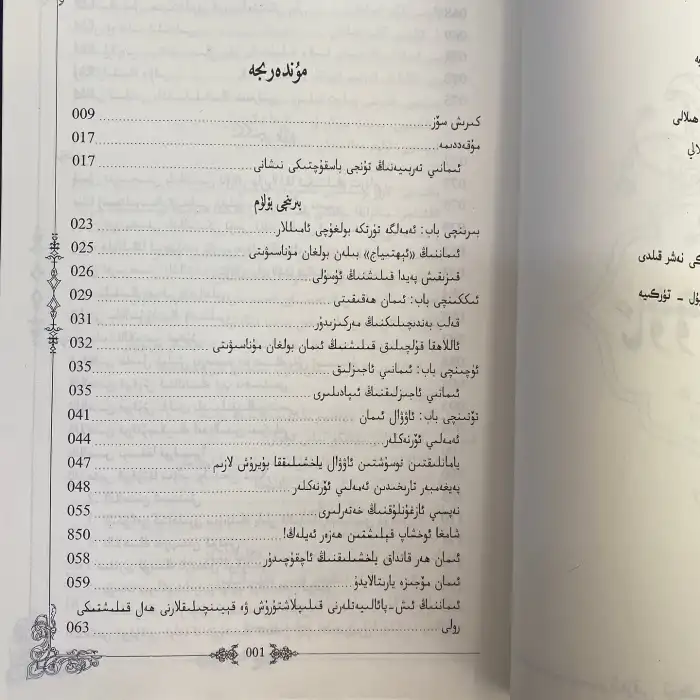 مۇندەرىجە
كىرىش سۆز 009
مۇقەددىمە 017
ئىمانىي تەربىيەنىڭ تۇنجى باسقۇچتىكى نىشانى 017
بىرىنچى بۆلۈم
بىرىنچى باب: ئەمەلگە تۈرتكە بولغۇچى ئامىللار 023
ئىماننىڭ «ئېھتىياج» بىلەن بولغان مۇناسىۋىتى 025
قىزىقىش پەيدا قىلىشنىڭ ئۇسۇلى 026
ئىككىنچى باب: ئىمان ھەقىقىتى 029
قەلب بەندىچىلىكنىڭ مەركىزىدۇر 031
ئاللاھقا قۇلچىلىق قىلىشنىڭ ئىمان بولغان مۇناسىۋىتى 032
ئۈچىنچى باب: ئىمانىي ئاجىزلىق 035
ئىمانىي ئاجىزلىقنىڭ ئىپادىلىرى 035
تۆتىنچى باب: ئاۋۋال ئىمان 041
ئەمەلىي ئۆرنەكلەر 044
يامانلىقتىن توسۇشتىن ئاۋۋال ياخشىلىققا بۇيرۇش لازىم 047
پەيغەمبەر تارىخىدىن ئەمەلىي ئۆرنەكلەر 048
نەپسىي ئازغۇنلۇقنىڭ خەتەرلىرى 055
شامغا ئوخشاپ قېلىشتىن ھەزەر ئەيلەڭ! 850
ئىمان ھەر قانداق ياخشىلىقنىڭ ئاچقۇچىدۇر 058
ئىمان مۆجىزە يارىتالايدۇ 059
ئىماننىڭ ئىش-پائالىيەتلەرنى قىلىپلاشتۇرۇش ۋە قىيىنچىلىقلارنى ھەل قىلىشتىكى
رولى 063
001
ھىلالى
كى نەشر قىلدى
ۇل - تۈركىيە